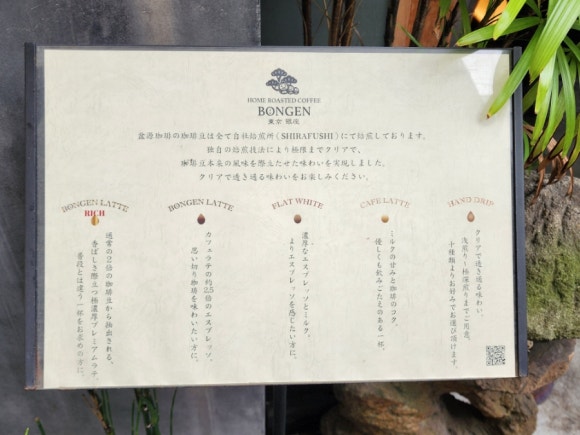 HOME ROASTED COFFEE
BONGEN
東京 銀座
盆源珈琲の珈琲豆は全て自社焙煎所（SHIRAFUSHI）にて焙煎しております。
独自の焙煎技法により極限までクリアで、
珈琲豆本来の風味を際立たせた味わいを実現しました。
クリアで透き通る味わいをお楽しみください。
BONGEN LATTE
RICH
通常の2倍の珈琲豆から抽出される、
香ばしさ際立つ極濃厚プレミアムラテ。
普段とは違う一杯をお求めの方に。
BONGEN LATTE
カフェラテの約2.5倍のエスプレッソ。
思い切り珈琲を味わいたい方に。
FLAT WHITE
濃厚なエスプレッソとミルク。
よりエスプレッソを感じたい方に。
CAFE LATTE
ミルクの甘みと珈琲のコク。
優しくも飲みごたえのある一杯。
HAND DRIP
クリアで透き通る味わい。
浅煎り〜極深煎りまでご用意。
十種類よりお好みでお選び頂けます。